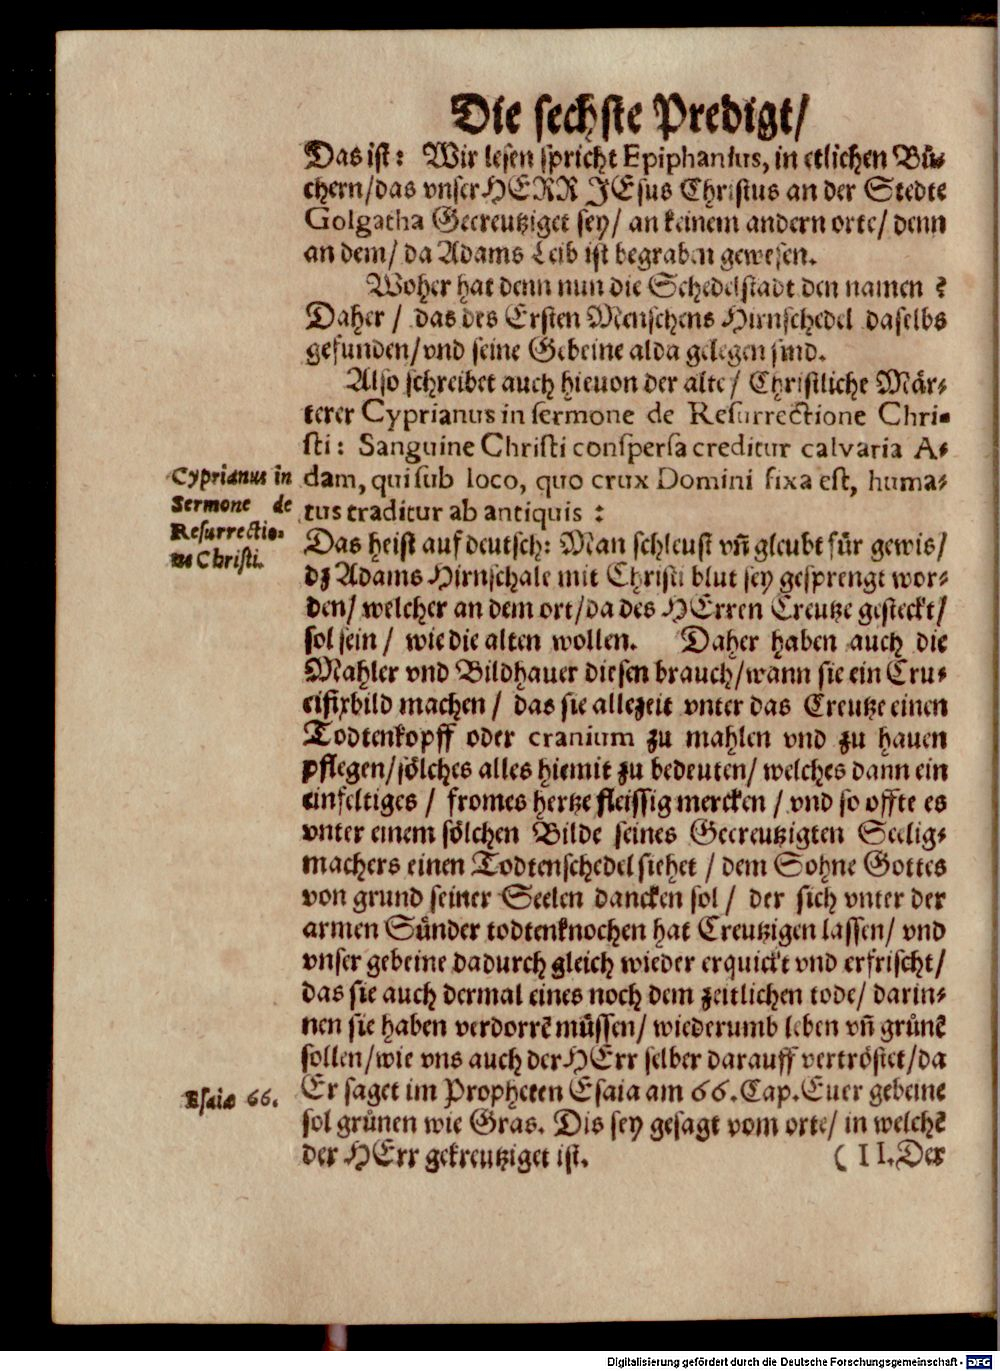 Die sechste Predigt/
Das ist: Wir lesen spricht Epiphanius, in etlichen Bü-
chern/das vnser HERR JEsus Christus an der Stedte
Golgatha Gecreutziget sey/ an keinem andern orte/ denn
an dem/ da Adams Leib ist begraben gewesen.
Woher hat denn nun die Schedelstadt den namen?
Daher/ das des Ersten Menschens Hirnschedel daselbs
gefunden/vnd seine Gebeine alda gelegen sind.
Also schreibet auch hieuon der alte/ Christliche Mär-
terer Cyprianus in sermone de Resurrectione Chri-
sti: Sanguine Christi conspersa creditur calvaria A-
Cyprianus in
Sermone de
Resurrectio-
ne Christi.
dam, qui sub loco, quo crux Domini fixa est, huma-
tus traditur ab antiquis:
Das heist auf deutsch: Man schleust vñ gleubt für gewis/
dz Adams Hirnschale mit Christi blut sey gesprengt wor-
den/ welcher an dem ort/da des HErren Creutze gesteckt/
sol sein/ wie die alten wollen. Daher haben auch die
Mahler vnd Bildhauer diesen brauch/wann sie ein Cru-
cifixbild machen/ das sie allezeit vnter das Creutze einen
Todtenkopff oder cranium zu mahlen vnd zu hauen
pflegen/sölches alles hiemit zu bedeuten/ welches dann ein
einfeltiges/ fromes hertze fleissig mercken/ vnd so offte es
vnter einem sölchen Bilde seines Gecreutzigten Seelig-
machers einen Todtenschedel siehet/ dem Sohne Gottes
von grund seiner Seelen dancken sol/ der sich vnter der
armen Sünder todtenknochen hat Creutzigen lassen/ vnd
vnser gebeine dadurch gleich wieder erquickt vnd erfrischt/
das sie auch dermal eines noch dem zeitlichen tode/ darin-
nen sie haben verdorrē müssen/ wiederumb leben vñ grünē
sollen/wie vns auch der HErr selber darauff vertröstet/da
Esaiæ 66.
Er saget im Propheten Esaia am 66. Cap. Euer gebeine
sol grünen wie Gras. Dis sey gesagt vom orte/ in welchē
der HErr gekreutziget ist.
( II. Der
Digitalisierung gefördert durch die Deutsche Forschungsgemeinschaft - DFG